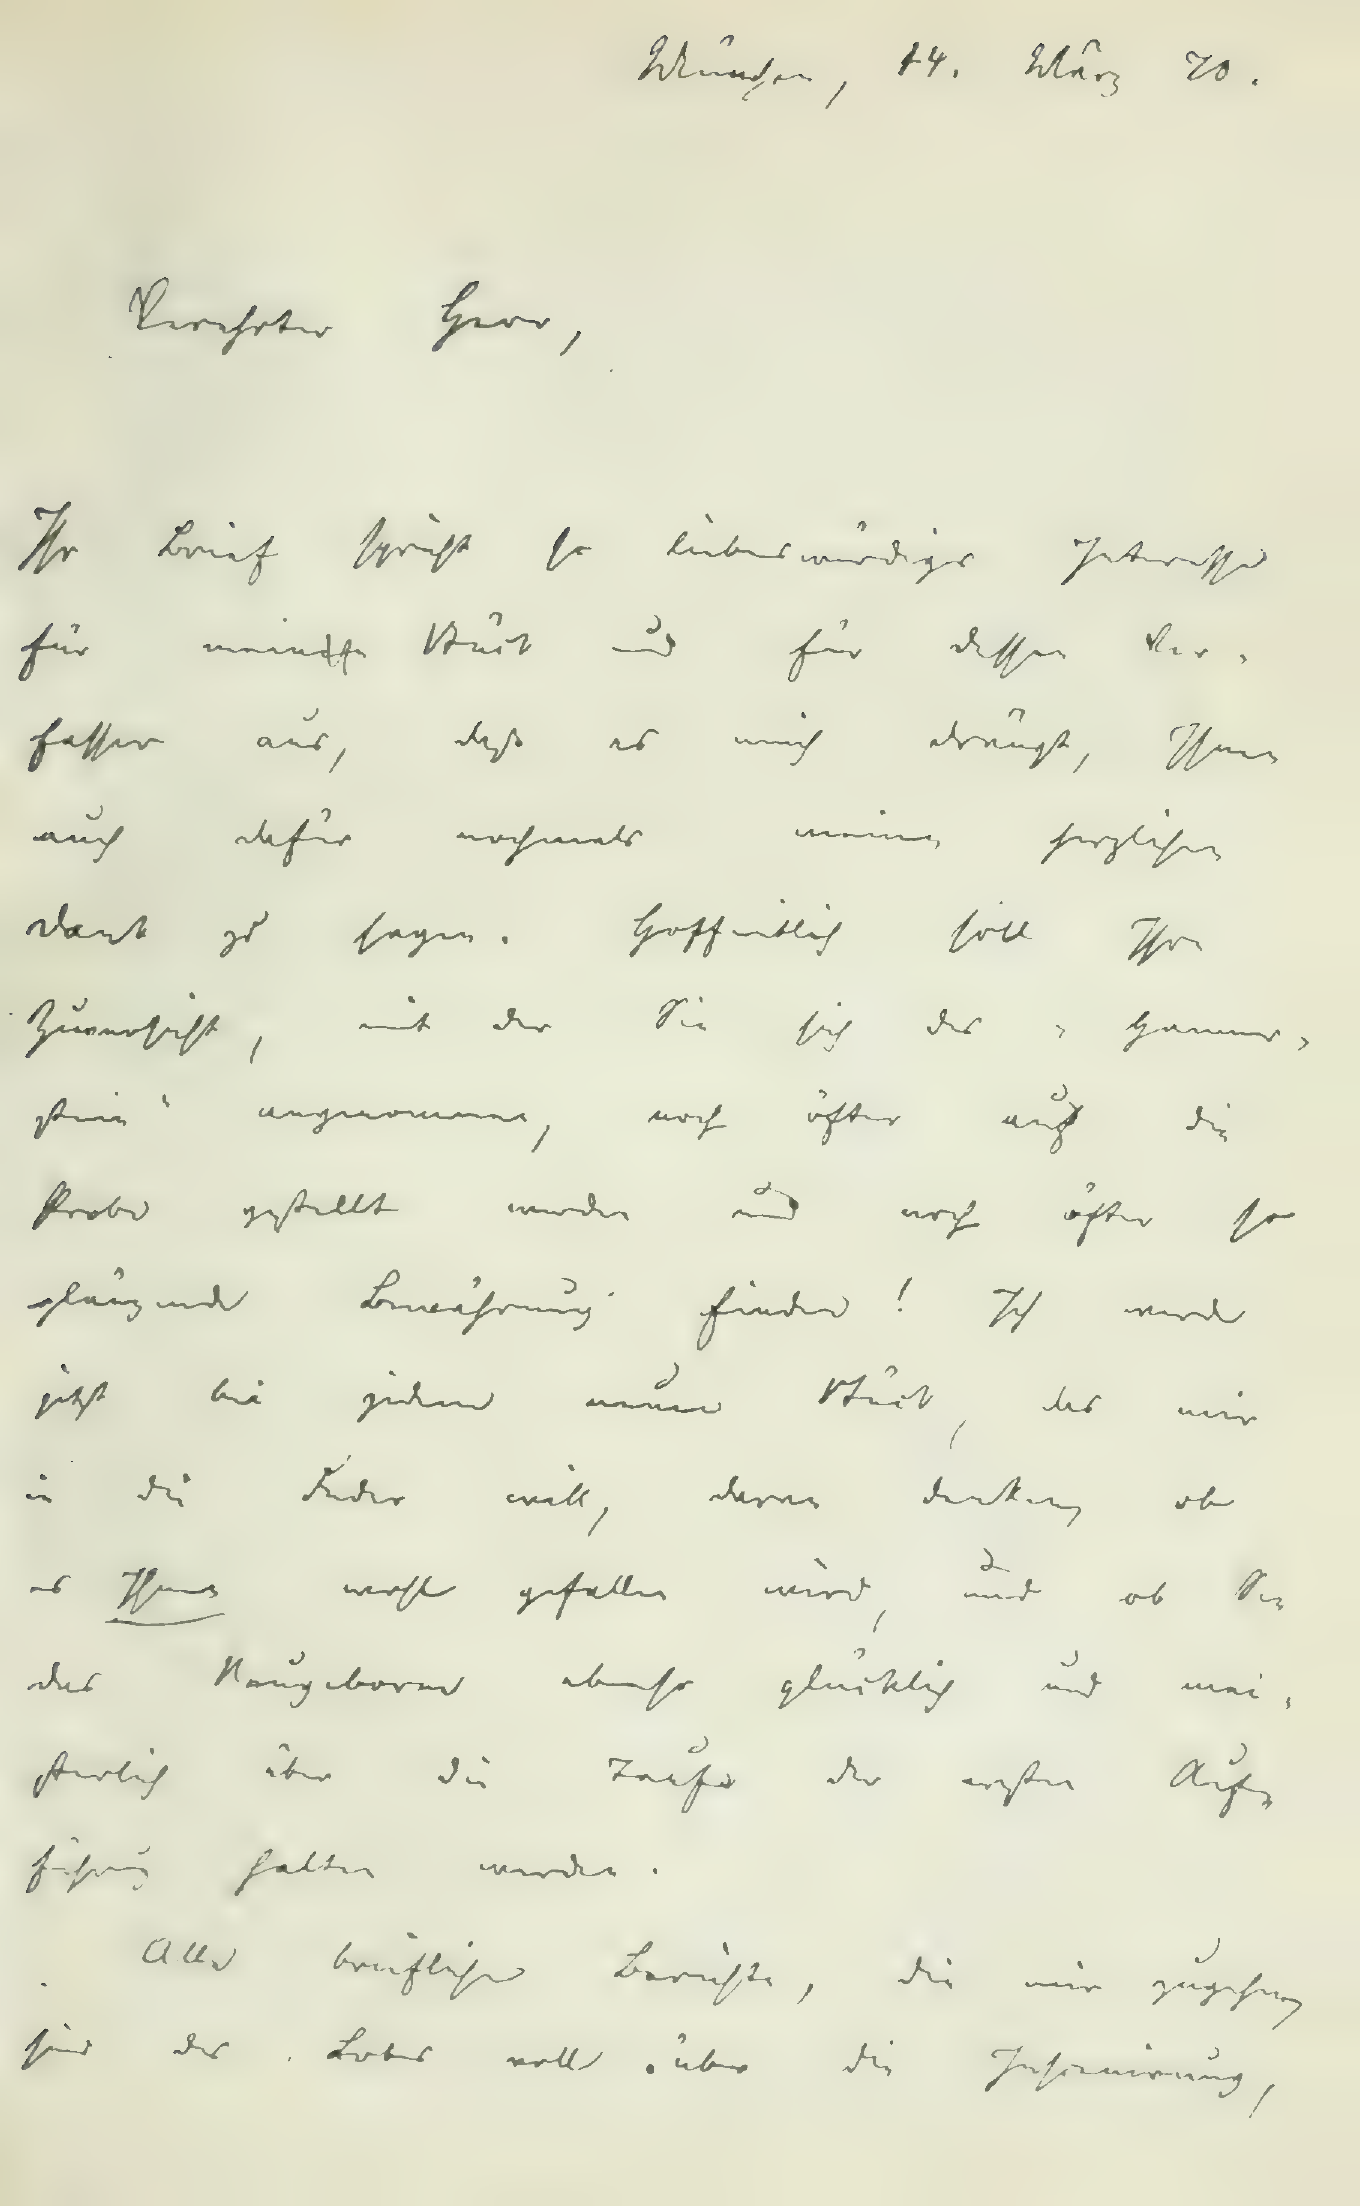 München, 14. März 70.
Verehrter Herr,
Ihr Brief spricht so liebenswürdiges Interesse
für mein Stück und für dessen Ver-
fasser aus, daß es mich drängt, Ihnen
auch dafür nochmals meinen herzlichen
Dank zu sagen. Hoffentlich soll Ihre
Zuversicht, mit der Sie sich der „Hammer-
stein“ angenommen, noch öfter auf die
Probe gestellt werden und noch öfter so
glänzende Bewährung finden! Ich werde
jetzt bei jedem neuen Stück, das mir
in die Feder will, daran denken, ob
es Ihnen wohl gefallen wird, und ob Sie
das Neugeborne ebenso glücklich und mei-
sterlich über die Taufe der ersten Auf-
führung halten werden.
Alle brieflichen Berichte, die mir zugehen,
sind des Lobes voll über die Inscenirung,